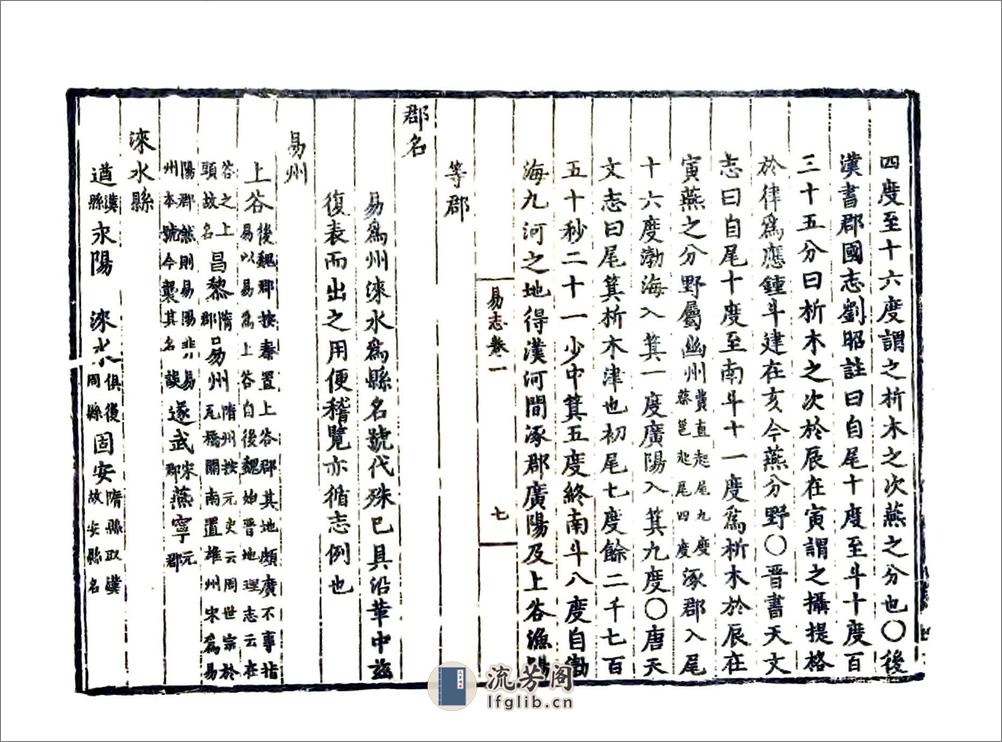 四度至十六度謂之析木之次燕之分也〇後
漢書郡國志劉昭註曰自尾十度至斗十度百
三十五分曰析木之次於辰在寅謂之攝提格
於律爲應鍾斗建在亥今燕分野〇晋書天文
志曰自尾十度至南斗十一度爲析木於辰在
寅燕之分野屬幽州費直起尾九度蔡邕起尾四度涿郡入尾
十六度渤海入箕一度廣陽入箕九度〇唐天
文志曰尾箕析木津也初尾七度餘二千七百
五十秒二十一少中箕五度終南斗八度自渤
海九河之地得漢河間涿郡廣陽及上谷漁陽
等郡
易志卷一
七
郡名
易爲州淶水爲縣名號代殊已具沿革中兹
復表而出之用便稽覽亦循志例也
易州
上谷後魏郡按秦置上谷郡其地頗廣不專指易以易爲上谷自後魏始晋地理志云在
谷之上頭故名昌黎隋郡易州隋州按元史云周世宗於瓦橋關南置雄州宋爲易
陽郡然則易陽非易州本號今襲其誤遂武宋郡燕寧元郡
淶水縣
遒漢縣永陽 淶水俱後周縣固安隋縣取漢故安縣名
流芳阁
lfglib.cn